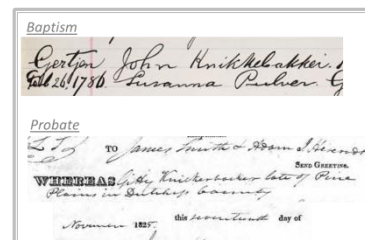 Baptism
Gertjen John Knikkelbakker.
Feb 26. 1786. Susanna Pulver. G
Probate
TO James Smith & Adam I.
SEND GREETING.
WHEREAS Gitty Knickerbocker late of Pine
Plains in Dutchess County
November 1825. this seventeenth day of